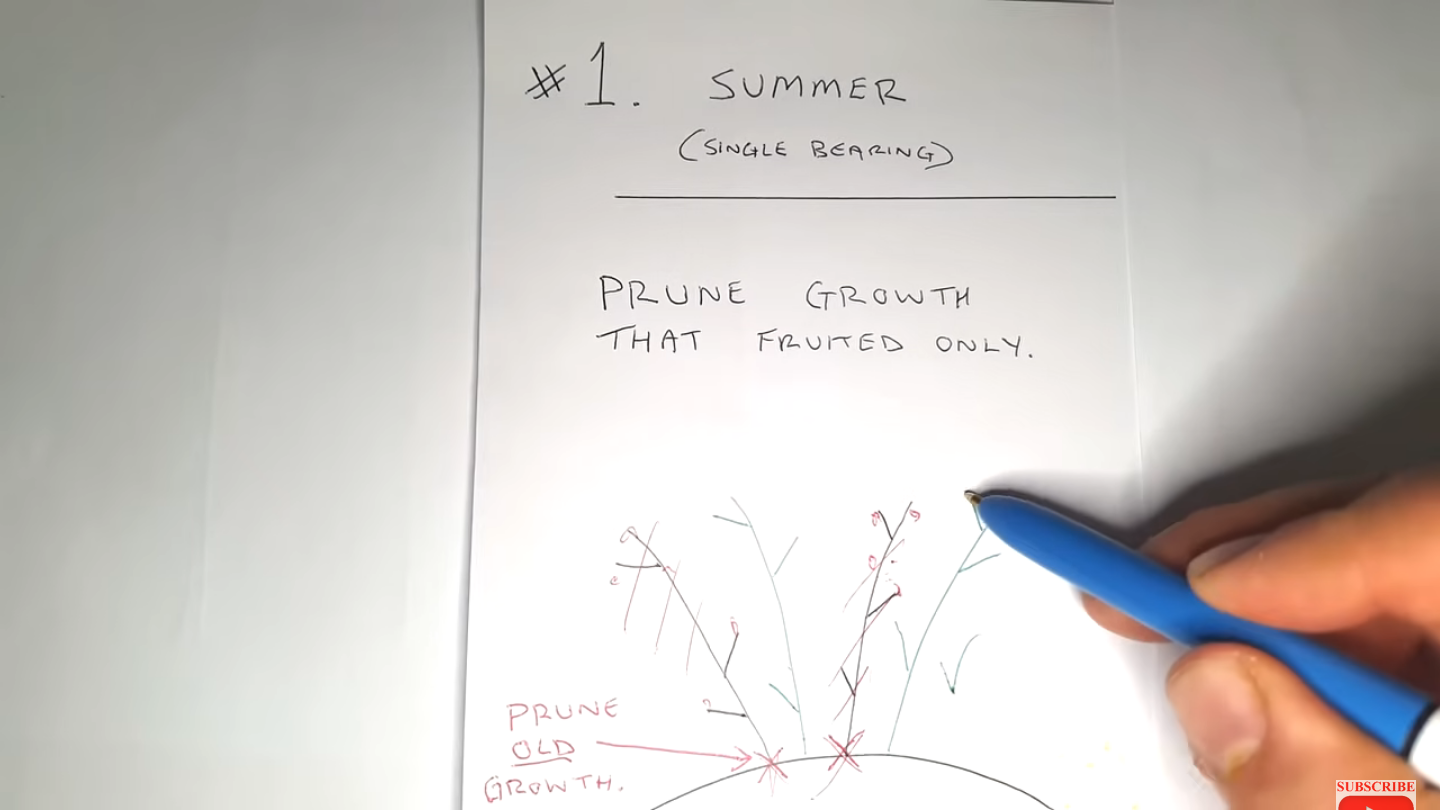 #1. SUMMER
(SINGLE BEARING)
PRUNE GROWTH
THAT FRUITED ONLY.
PRUNE
OLD
GROWTH.
SUBSCRIBE